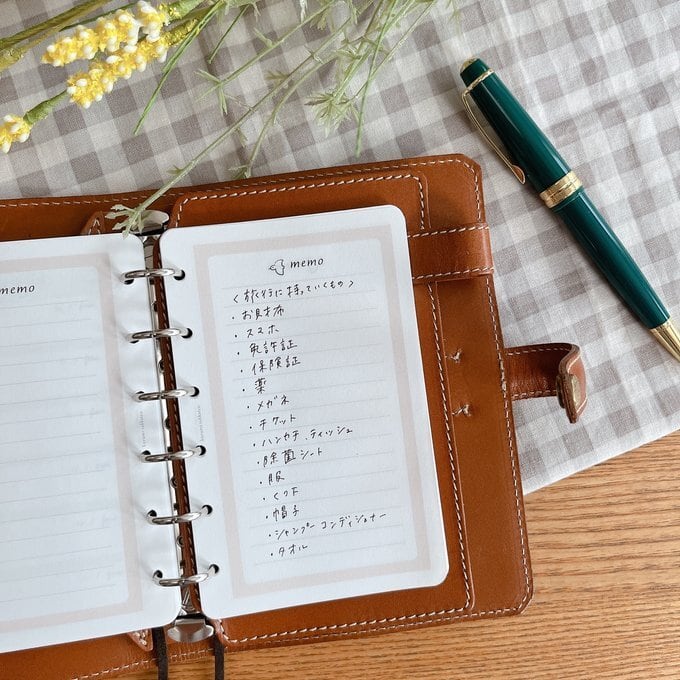 memo
memo
〈旅行に持っていくもの〉
・お財布
・スマホ
・免許証
・保険証
・薬
・メガネ
・チケット
・ハンカチ、ティッシュ
・除菌シート
・服
・くつ下
・帽子
・シャンプー コンディショナー
・タオル